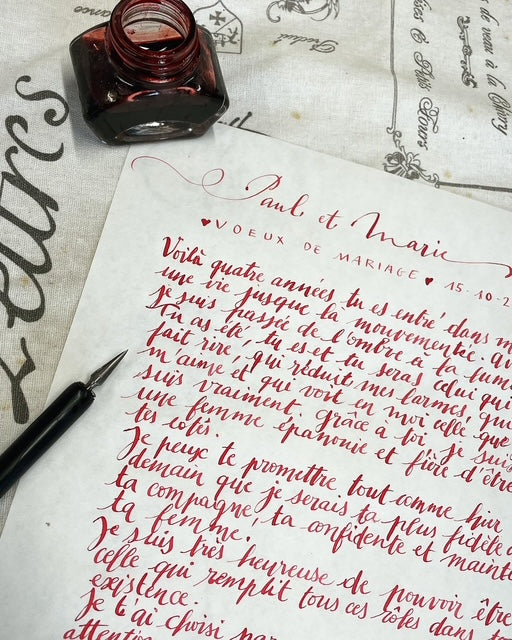 Paul et Marie
♥ VOEUX DE MARIAGE ♥ 15.10.2
Voilà quatre années tu es entré dans m
une vie jusque là mouvementée. Qu
je suis passée de l'ombre à la lum
Tu as été, tu es et tu seras celui qui
fait rire, qui réduit mes larmes, qui
m'aime et qui voit en moi celle que
suis vraiment. grâce à toi je suis
une femme épanouie et fière d'être
tes côtés.
Je peux te promettre tout comme hier
demain que je serais ta plus fidèle a
ta compagne, ta confidente et mainte
ta femme.
Je suis très heureuse de pouvoir être
celle qui remplit tous ces rôles dans
existence.
Je t'ai choisi par
attention
Lettres
Produit
rance
de veau à la Chivry
ises & Petits Fours